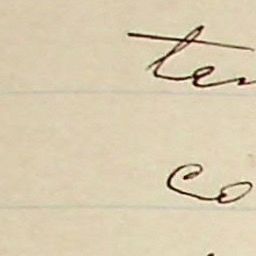 ten
co